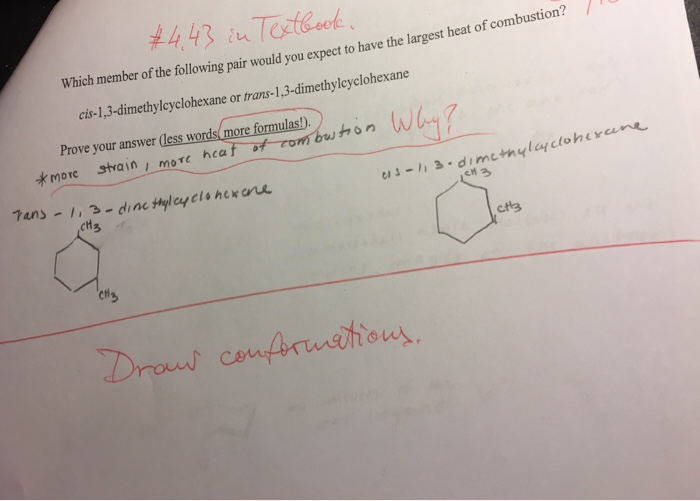 #4.43 in Textbook.
Which member of the following pair would you expect to have the largest heat of combustion?
cis-1,3-dimethylcyclohexane or trans-1,3-dimethylcyclohexane
Prove your answer (less words, more formulas!).
Why?
*more strain, more heat of combustion
Trans-1,3-dimethylcyclohexane
cis-1,3-dimethylcyclohexane
CH3
CH3
CH3
CH3
Draw conformations.